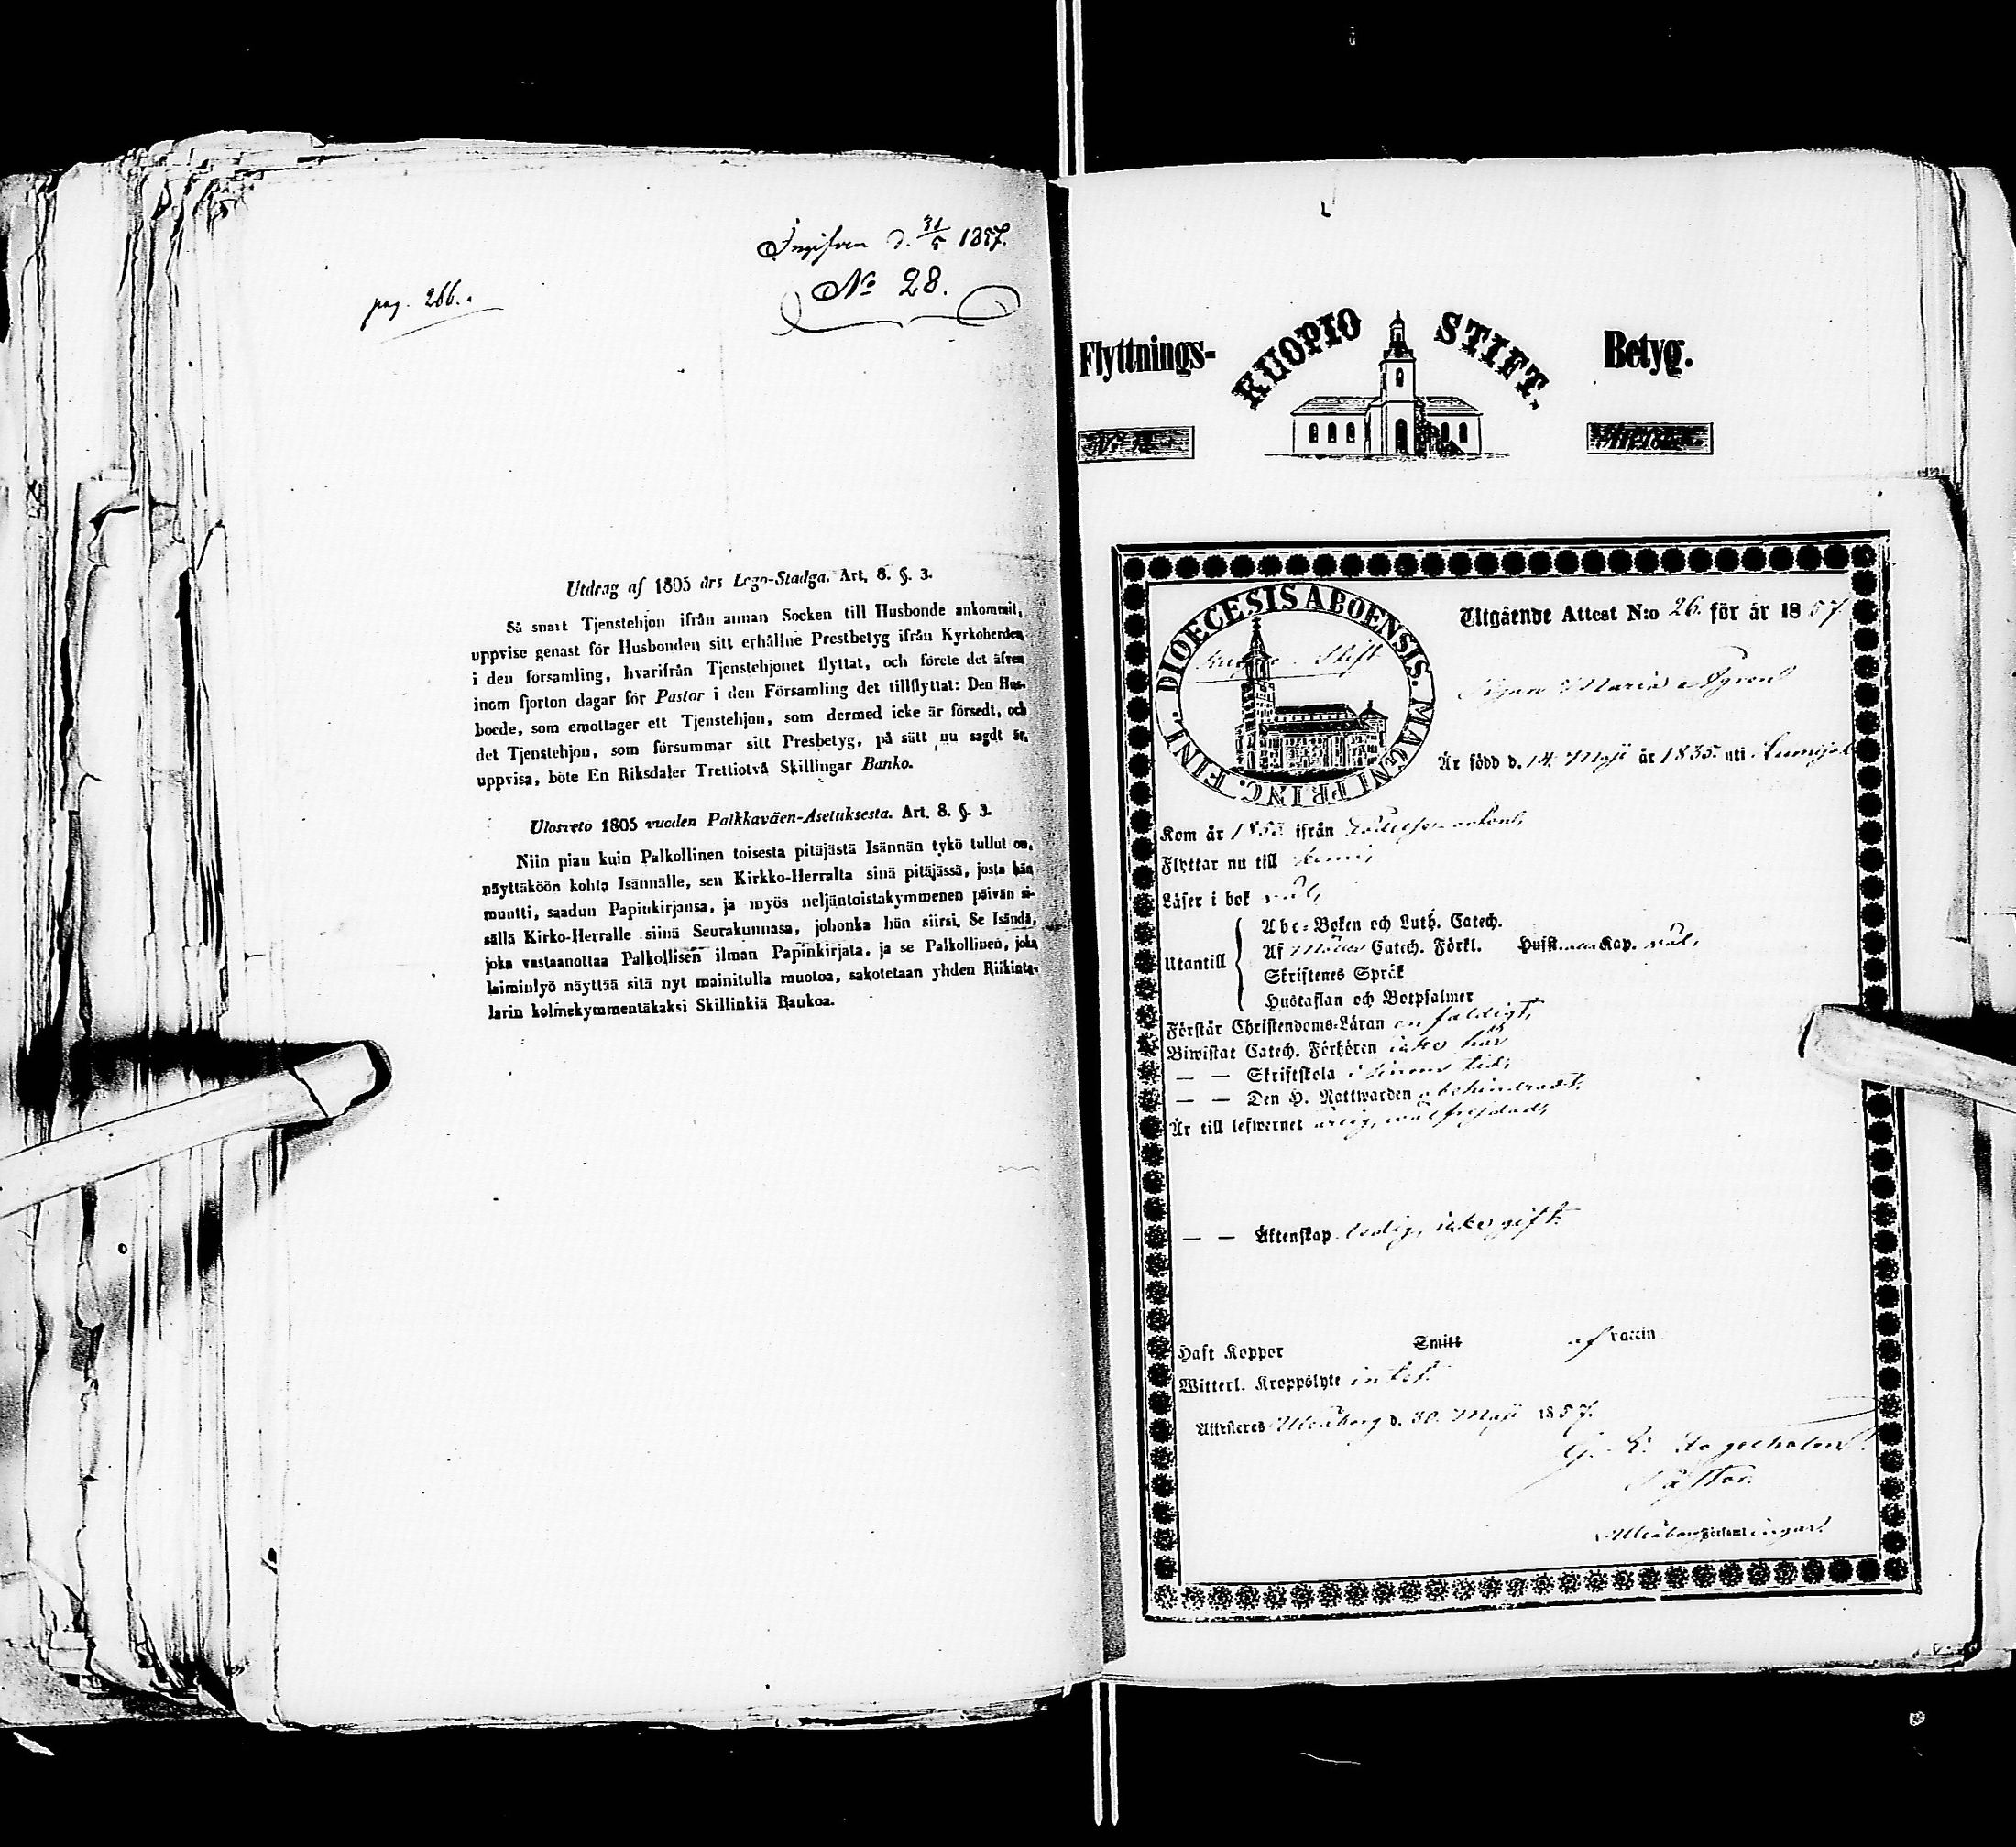 Ingifven d. 31/5 1857.
No 28.
pag. 266.
Utdrag af 1805 års Lego-Stadga. Art. 8. §. 3.
Så snart Tjenstehjon ifrån annan Socken till Husbonde ankommit,
uppvise genast för Husbonden sitt erhållne Prestbetyg ifrån Kyrkoherden
i den församling, hvarifrån Tjenstehjonet flyttat, och förete det äfven
inom fjorton dagar för Pastor i den Församling det tillflyttat: Den Hus-
bonde, som emottager ett Tjenstehjon, som dermed icke är försedt, och
det Tjenstehjon, som försummar sitt Presbetyg, på sätt nu sagdt är,
uppvisa, böte En Riksdaler Trettiotvå Skillingar Banko.
Ulosveto 1805 vuoden Palkkaväen-Asetuksesta. Art. 8. §. 3.
Niin pian kuin Palkollinen toisesta pitäjästä Isännän tykö tullut on,
näyttäköön kohta Isännälle, sen Kirkko-Herralta siinä pitäjässä, josta hän
muutti, saadun Papinkirjansa, ja myös neljäntoistakymmenen päivän si-
sällä Kirko-Herralle siinä Seurakunnasa, johonka hän siirsi. Se Isändä,
joka vastaanottaa Palkollisen ilman Papinkirjata, ja se Palkollinen, joka
laiminlyö näyttää sitä nyt mainitulla muotoa, sakotetaan yhden Riikinta-
larin kolmekymmentäkaksi Skillinkiä Baukoa.
Flyttnings- KUOPIO STIFT. Betyg.
DIOECESIS ABOENSIS. MAGNI PRINC. FINL.
Kuopio Stift
Utgående Attest N:o 26. för år 1857.
Maria
Är född d. 14. Maji år 1835. uti
Kom år ifrån
Flyttar nu till Kemi,
Läser i bok väl,
Utantill
Abc-Boken och Luth. Catech.
Af Catech. Förkl. Hufst. Kap. väl,
Skriftenes Språk
Hustaflan och Botpsalmer
Förstår Christendoms-Läran enfaldigt,
Biwistat Catech. Förhören icke här
— — Skriftskola i sinom tid,
— — Den H. Nattwarden obehindradt,
Är till lefwernet ärlig, välfrejdad,
— — Äktenskap ledig, icke gift.
Haft Koppor Smitt af vaccin
Witterl. Kroppslyte intet.
Attesteres Uleåborg d. 30. Maji 1857.
Pastor.
Uleåborgs Församlingar.